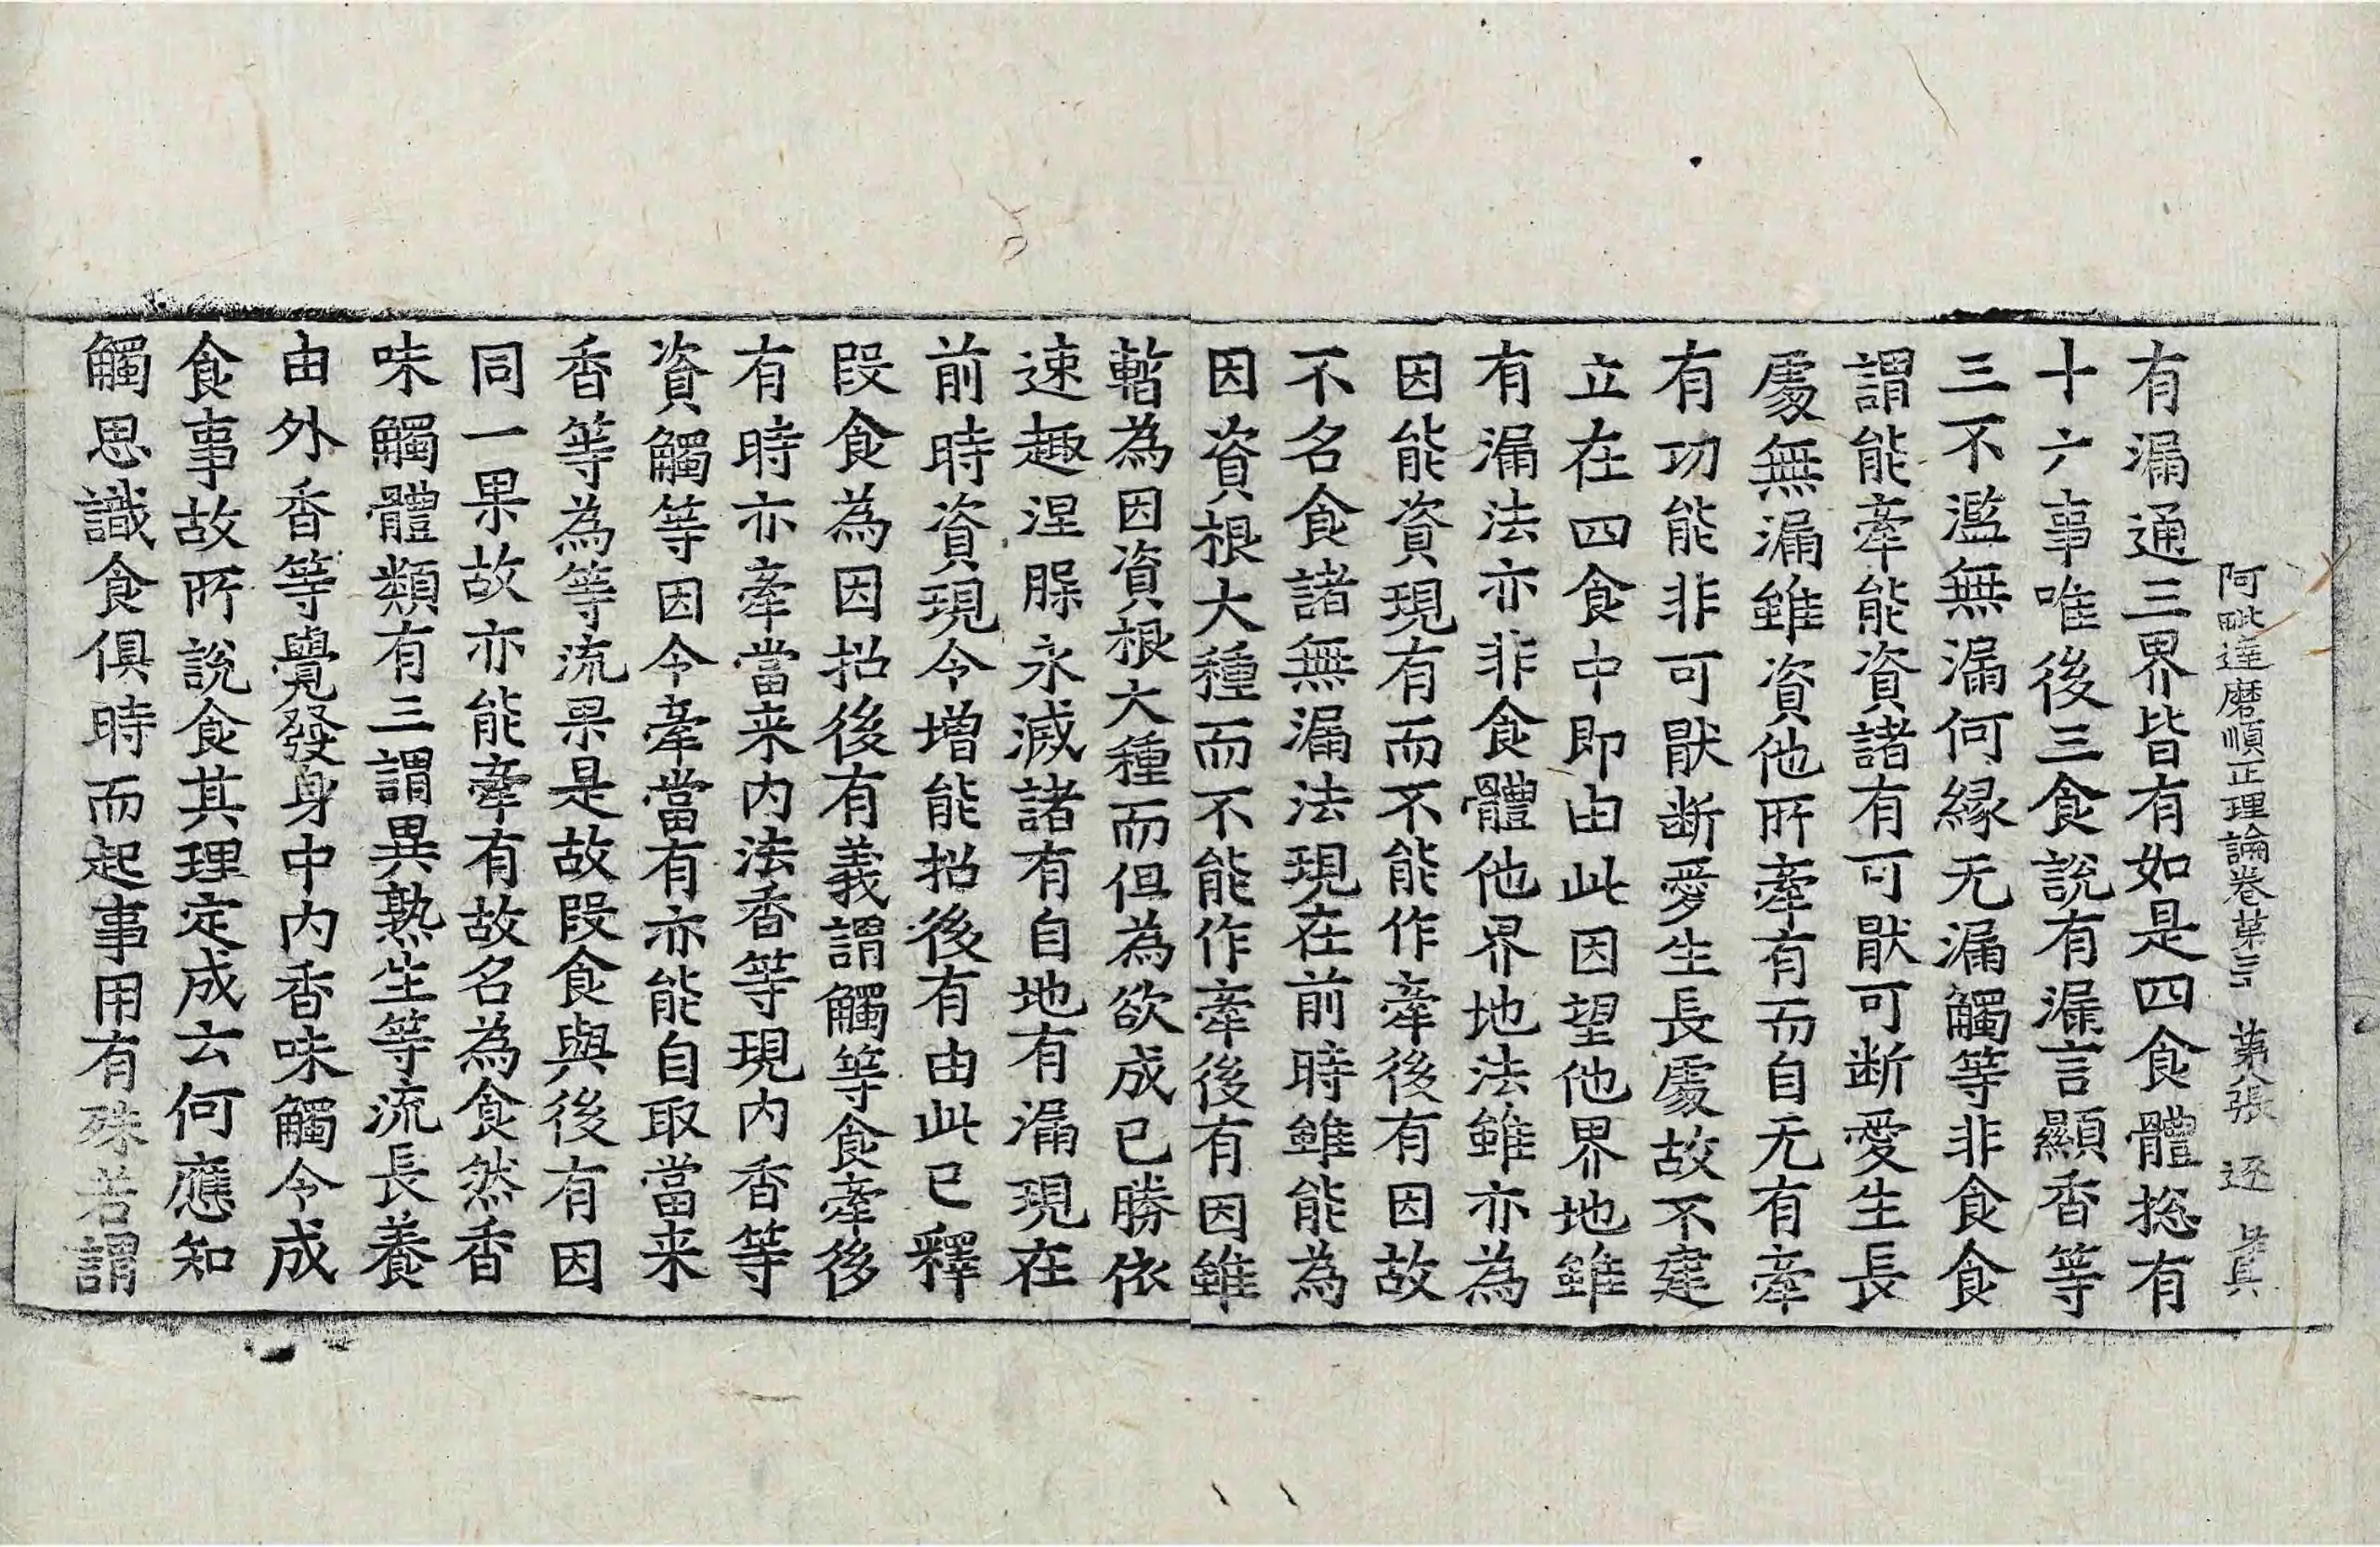 阿毗達磨順正理論卷苐三十 苐八張 逐
有漏通三界皆有如是四食體捴有
十六事唯後三食說有漏言顯香等
三不濫無漏何緣无漏觸等非食食
謂能牽能資諸有可猒可断愛生長
處無漏雖資他所牽有而自无有牽
有功能非可猒断愛生長處故不建
立在四食中即由此因望他界地雖
有漏法亦非食體他界地法雖亦為
因能資現有而不能作牽後有因故
不名食諸無漏法現在前時雖能為
因資根大種而不能作牽後有因雖
暫為因資根大種而但為欲成已勝依
速趣涅槃永滅諸有自地有漏現在
前時資現令增能招後有由此已釋
段食為因招後有義謂觸等食牽後
有時亦牽當来内法香等現内香等
資觸等因令牽當有亦能自取當来
香等為等流果是故段食與後有因
同一果故亦能牽有故名為食然香
味觸體類有三謂異熟生等流長養
由外香等覺發身中内香味觸令成
食事故所說食其理定成云何應知
觸思識食俱時而起事用有殊若謂